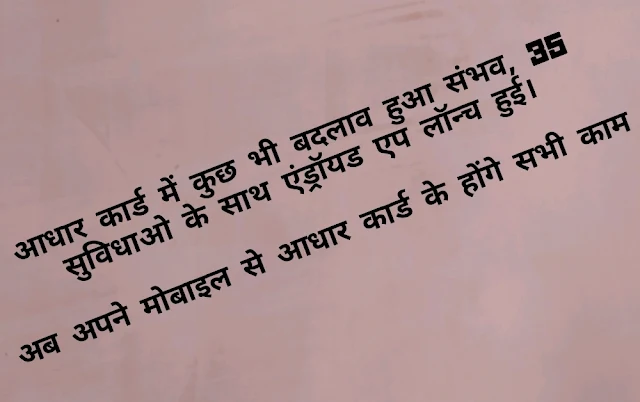 आधार कार्ड में कुछ भी बदलाव हुआ संभव, 35
सुविधाओ के साथ एंड्रॉयड एप लॉन्च हुई।
अब अपने मोबाइल से आधार कार्ड के होंगे सभी काम